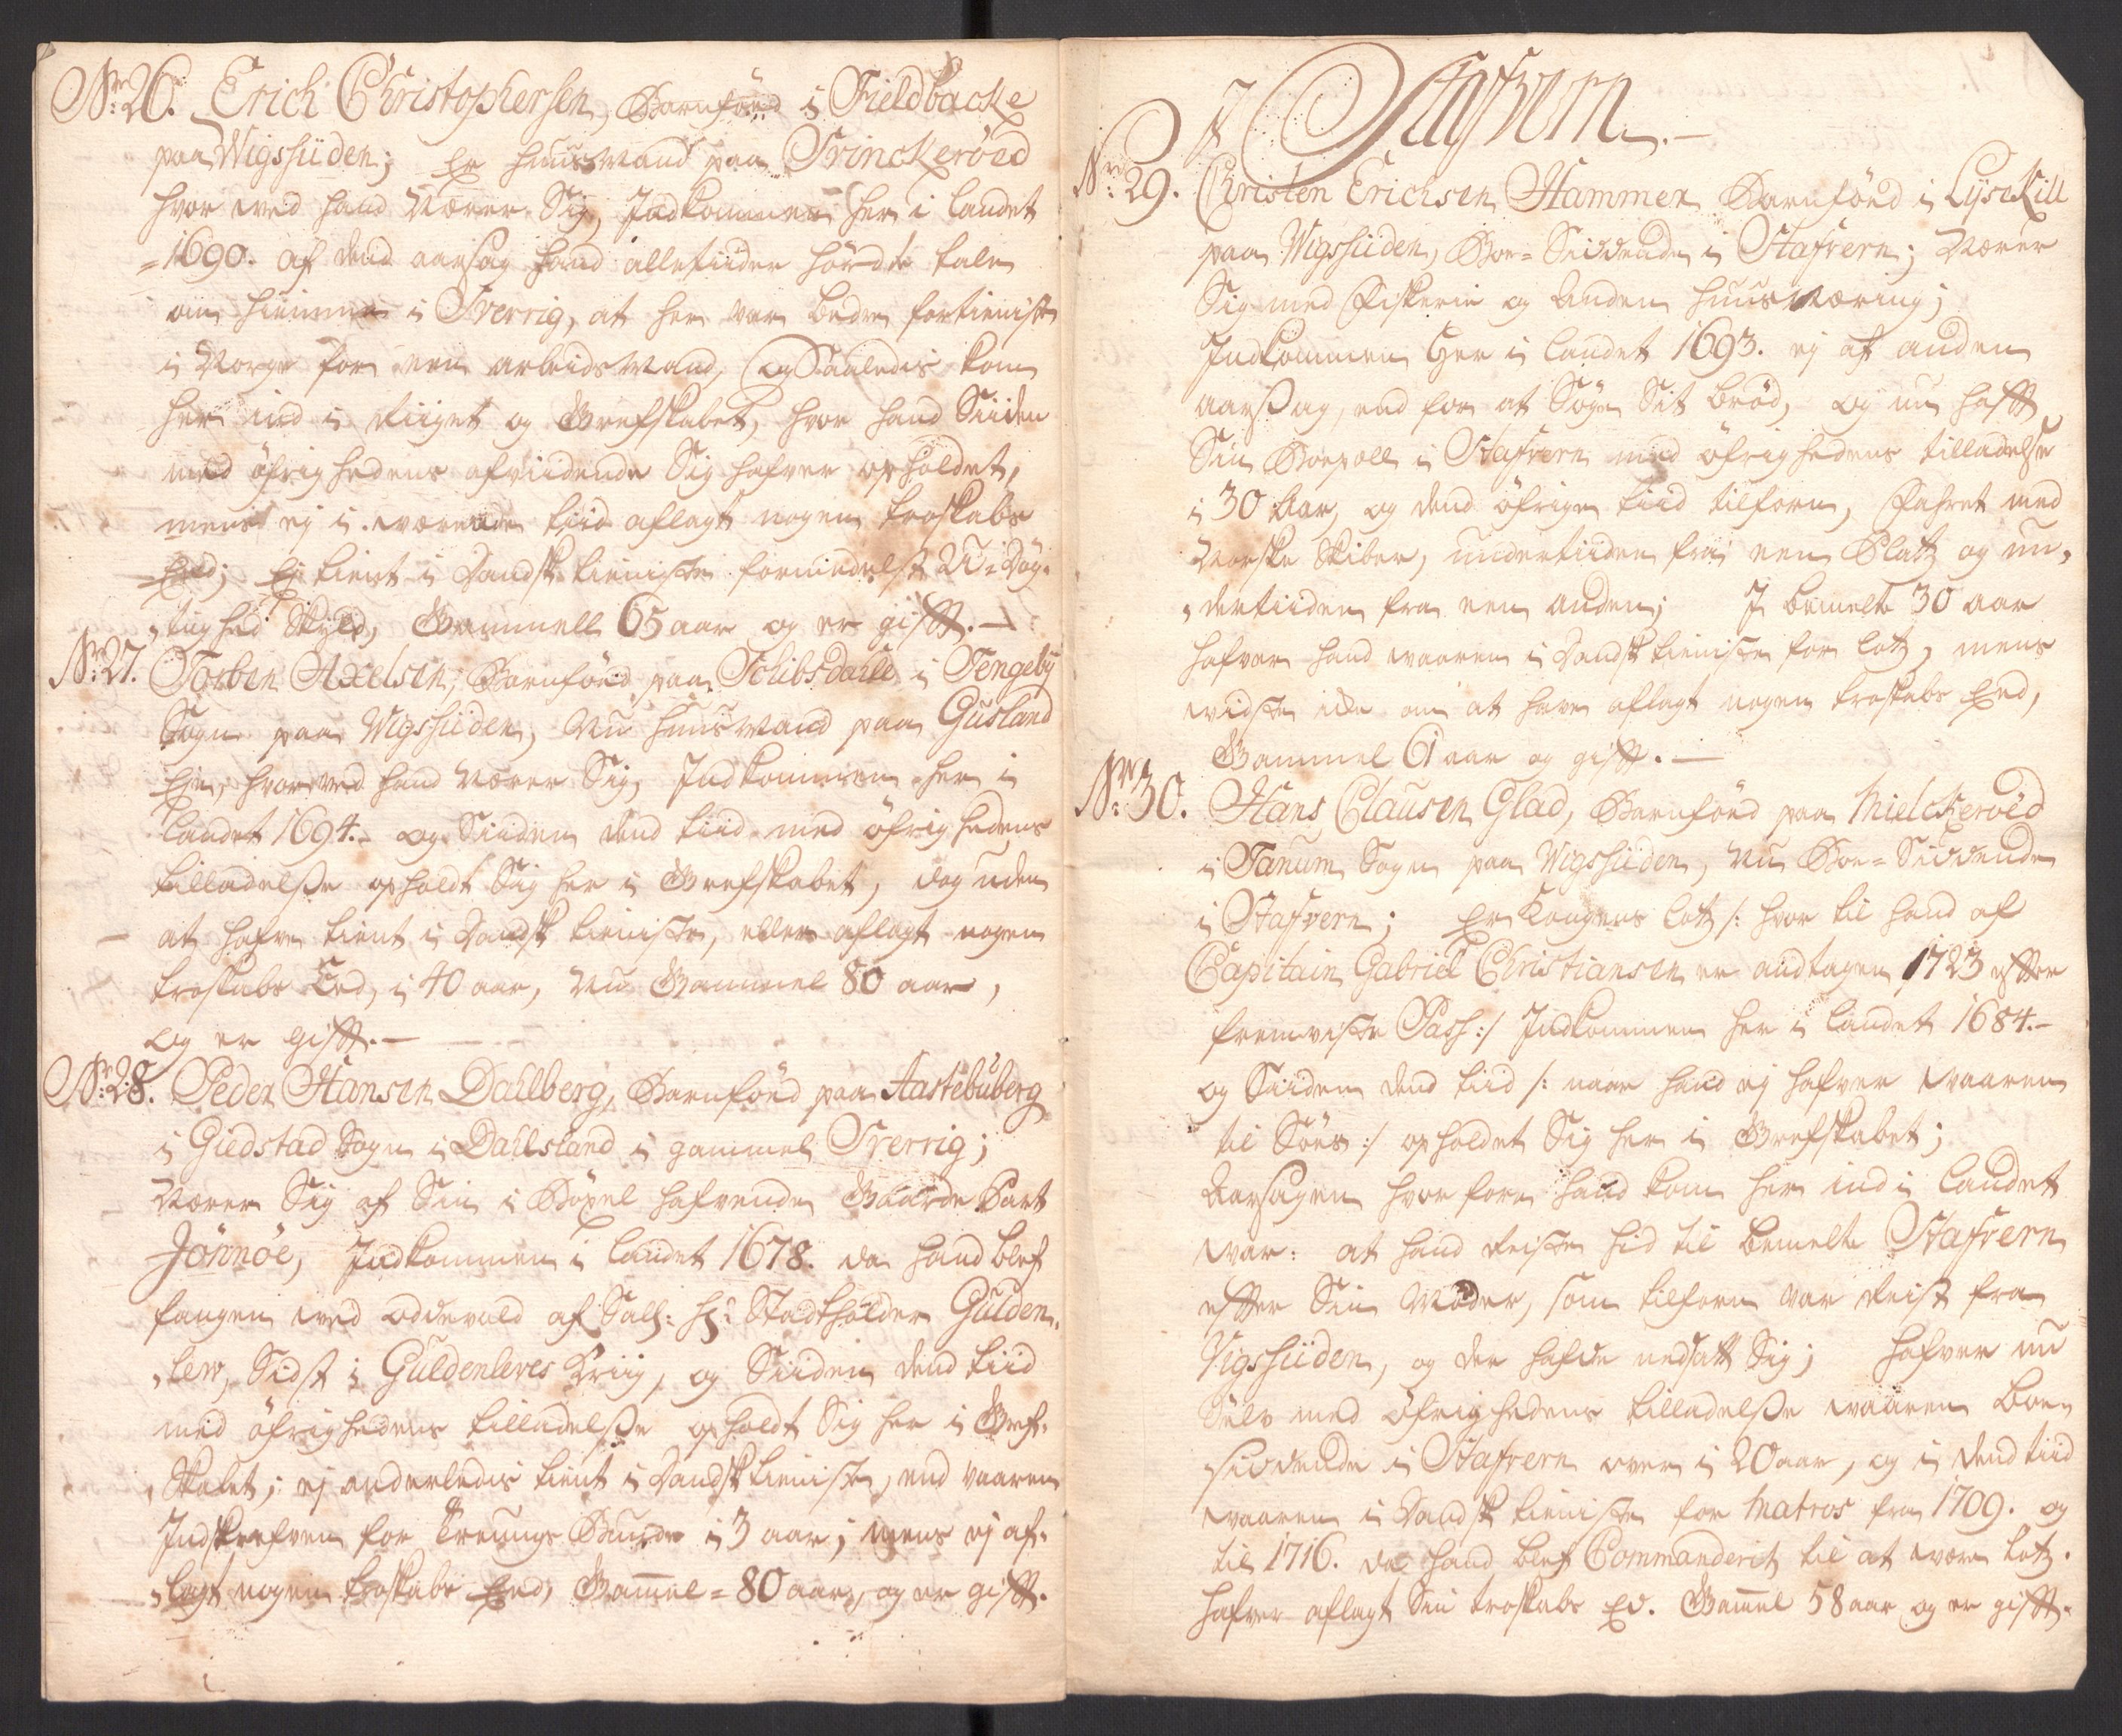 Nr: 26. Erich Christophersen, Barnföed i Fieldbacke
paa Wigssiiden; Er huusmand paa Trinckeröed
hvor ved hand Nærer Sig, Indkommen her i landet
=1690. af dend aarsag hand alletiider hörde tale
om hiemme i Sverrig, at her var bedre fortieniste
i Norge for een arbeidsmand, og Saaledis kom
her ind i Riiget og Grefskabet, hvor hand Siiden
med öfrighedens afviidende Sig hafver opholdet,
mens ej i værende tiid aflagt nogen troskabs
Eed; Ej tient i Dandsk tieniste formedelst U=Dög-
,tighed Skyld, Gammell 65 aar og er gifft.—
Nr: 27. Torben Axelsen, Barnföed paa Schibsdahle i Tengeby
Sogn paa Wigssiiden, Nu huusmand paa Gusland
Eje, hvorved hand Nærer Sig, Indkommen her i
landet 1694.- og Siiden dend tiid med öfrighedens
tilladelsse opholdt Sig her i Grefskabet, dog uden
at hafve tient i Dandsk tieniste, eller aflagt nogen
troskabs Eed, i 40 aar, Nu Gammel 80 aar,
og er gifft.—
Nr: 28. Peder Hansen Dahlberg, Barnföed paa Aastebuberg
i Giedstad Sogn i Dahlsland i gammel Sverrig;
Nærer Sig af Sin i Böxel hafvende Gaarde Part
Jönnöe, Indkommen i landet 1678. da hand blef
fangen ved Oddevald af Sall: Hr: Stadtholder Gulden,
,lew, Sidst i Guldenleves Kriig, og Siiden dend tiid
med öfrighedens tilladelsse opholdt Sig her i Gref-
,skabet; ej anderledis tient i Dandsk tieniste, end vaaren
Indskrefven for Treungs Bunde i 3 aar; mens ej af-
,lagt nogen troskabs Eed, Gammel = 80 aar, og er gifft.
I Stafvern.—
Nr: 29. Christen Erichsen Hammer Barnföed i Lysekill
paa Wigssiiden, Boe=Siddende i Stafvern; Nærer
Sig med Fiskerie og anden huusnæring;
Indkommen her i landet 1693. ej af anden
aarsag, end for at Söge Sit bröd, og nu hafft
Sin Boepæll i Stafvern med öfrighedens tilladelse
i 30 Aar, og dend öfrige tiid tilforn, Fahret med
Norske Skiber, undertiiden fra een Platz og un,
,dertiiden fra een anden; I bemelte 30 aar
hafver hand vaaren i Dandsk tieniste for lotz, mens
vidste icke om at have aflagt nogen troskabs Eed,
Gammel 61 aar og gifft.—
Nr: 30. Hans Clausen Glad, Barnföed paa Mielckeröed
i Tanum Sogn paa Wigssiiden, Nu Boe=Siddende
i Stafvern; Er Kongens lotz /: hvor til hand af
Capitain Gabriel Christiansen er andtagen 1723 effter
fremviste Pass :/ Indkommen her i landet 1684.-
og Siiden dend tiid /: naar hand ej hafver vaaren
til Söes :/ opholdet Sig her i Grefskabet;
Aarsagen hvorfore hand kom her ind i landet
var: at hand Reiste hid til bemelte Stafvern
effter Sin Moder, som tilforn var Reist fra
Vigssiiden, og der hafde nedsatt Sig; hafver nu
Selv med Öfrighedens tilladelsse vaaren boe-
siddende i Stafvern over i 20 aar, og i dend tiid
vaaren i Dandsk tieniste for Matros fra 1709. og
til 1716. da hand blef Commanderit til at være lotz.
hafver aflagt Sin troskabs Ed. Gammel 58 aar og er gifft.